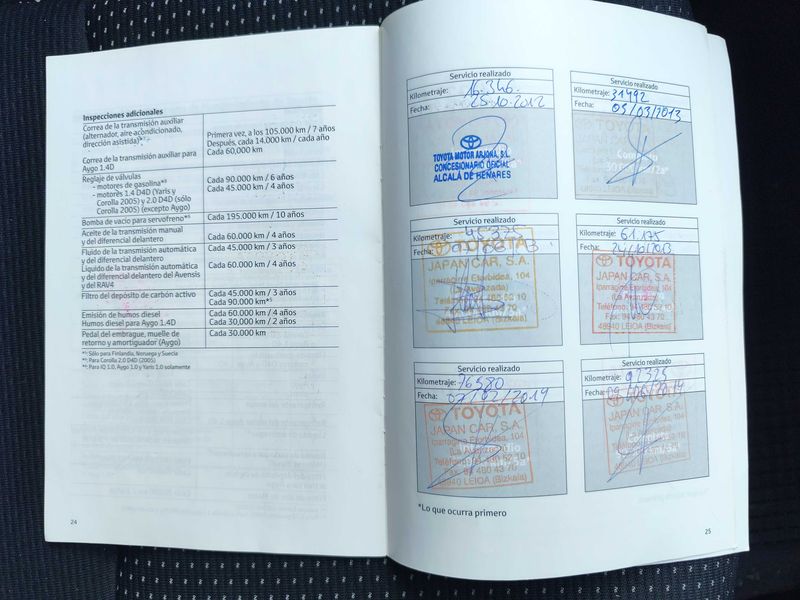 Inspecciones adicionales
Correa de la transmisión auxiliar
(alternador, aire acondicionado,
dirección asistida)
Primera vez, a los 105.000 km / 7 años
Después, cada 14.000 km / cada año
Correa de la transmisión auxiliar para
Aygo 1.4D
Cada 60,000 km
Reglaje de válvulas
- motores de gasolina*³
- motores 1.4 D4D (Yaris y
Corolla 2005) y 2.0 D4D (sólo
Corolla 2005) (excepto Aygo)
Cada 90.000 km / 6 años
Cada 45.000 km / 4 años
Bomba de vacío para servofreno*⁶
Cada 195.000 km / 10 años
Aceite de la transmisión manual
y del diferencial delantero
Cada 60.000 km / 4 años
Fluido de transmisión automática
y del diferencial delantero
Cada 45.000 km / 3 años
Líquido de la transmisión automática
y del diferencial delantero del Avensis
y del RAV4
Cada 60.000 km / 4 años
Filtro del depósito de carbón activo
Cada 45.000 km / 3 años
Cada 90.000 km*⁵
Emisión de humos diesel
Cada 60.000 km / 4 años
Humos diesel para Aygo 1.4D
Cada 30,000 km / 2 años
Pedal del embrague, muelle de
retorno y amortiguador (Aygo)
Cada 30.000 km
Sólo para Finlandia, Noruega y Suecia
Para Corolla 2.0 D4D (2005)
Para IQ 1.0, Aygo 1.0 y Yaris 1.0 solamente
24
Servicio realizado
Kilometraje: 16.346.
Fecha: 25.10.2012
TOYOTA MOTOR ARJONA, S.L.
CONCESIONARIO OFICIAL
ALCALÁ DE HENARES
Servicio realizado
Kilometraje: 31492
Fecha: 05/03/2013
Servicio realizado
Kilometraje: 45375
Fecha:
TOYOTA
JAPAN CAR, S.A.
Iparragirre Etorbidea, 104
(La Avanzada)
Teléfono: 94 480 52 10
Fax: 94 480 43 70
48940 LEIOA (Bizkaia)
Servicio realizado
Kilometraje: 61.175
Fecha: 24/10/2013
TOYOTA
JAPAN CAR, S.A.
Iparragirre Etorbidea, 104
(La Avanzada)
Teléfono: 94 480 52 10
Fax: 94 480 43 70
48940 LEIOA (Bizkaia)
Servicio realizado
Kilometraje: 76580
Fecha: 07/02/2014
TOYOTA
JAPAN CAR, S.A.
Iparragirre Etorbidea, 104
(La Avanzada)
Teléfono: 94 480 52 10
Fax: 94 480 43 70
48940 LEIOA (Bizkaia)
Servicio realizado
Kilometraje: 92325
Fecha: 09/06/2014
TOYOTA
JAPAN CAR, S.A.
48940 LEIOA (Bizkaia)
*Lo que ocurra primero
25